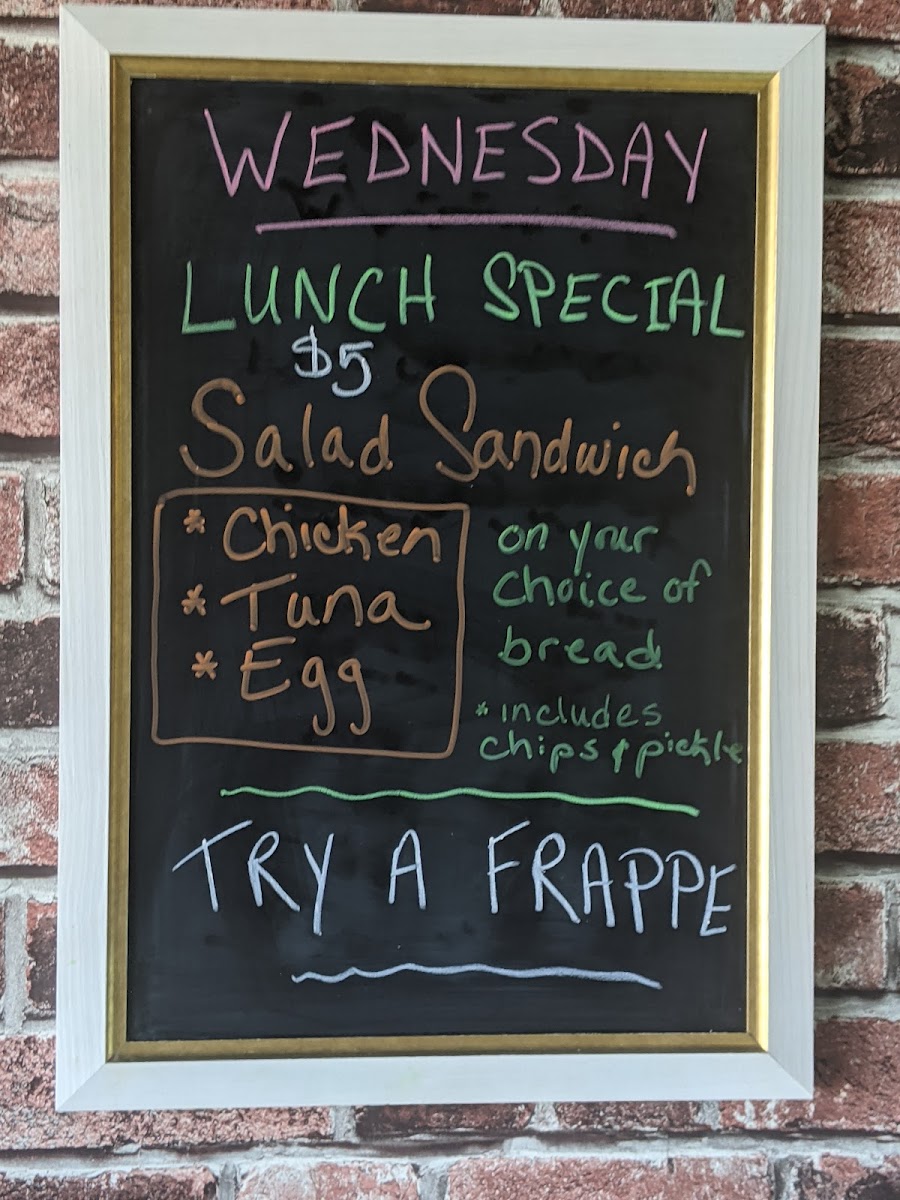 WEDNESDAY
LUNCH SPECIAL
$5
Salad Sandwich
* Chicken
* Tuna
* Egg
on your
choice of
bread
* includes
chips & pickle
TRY A FRAPPE